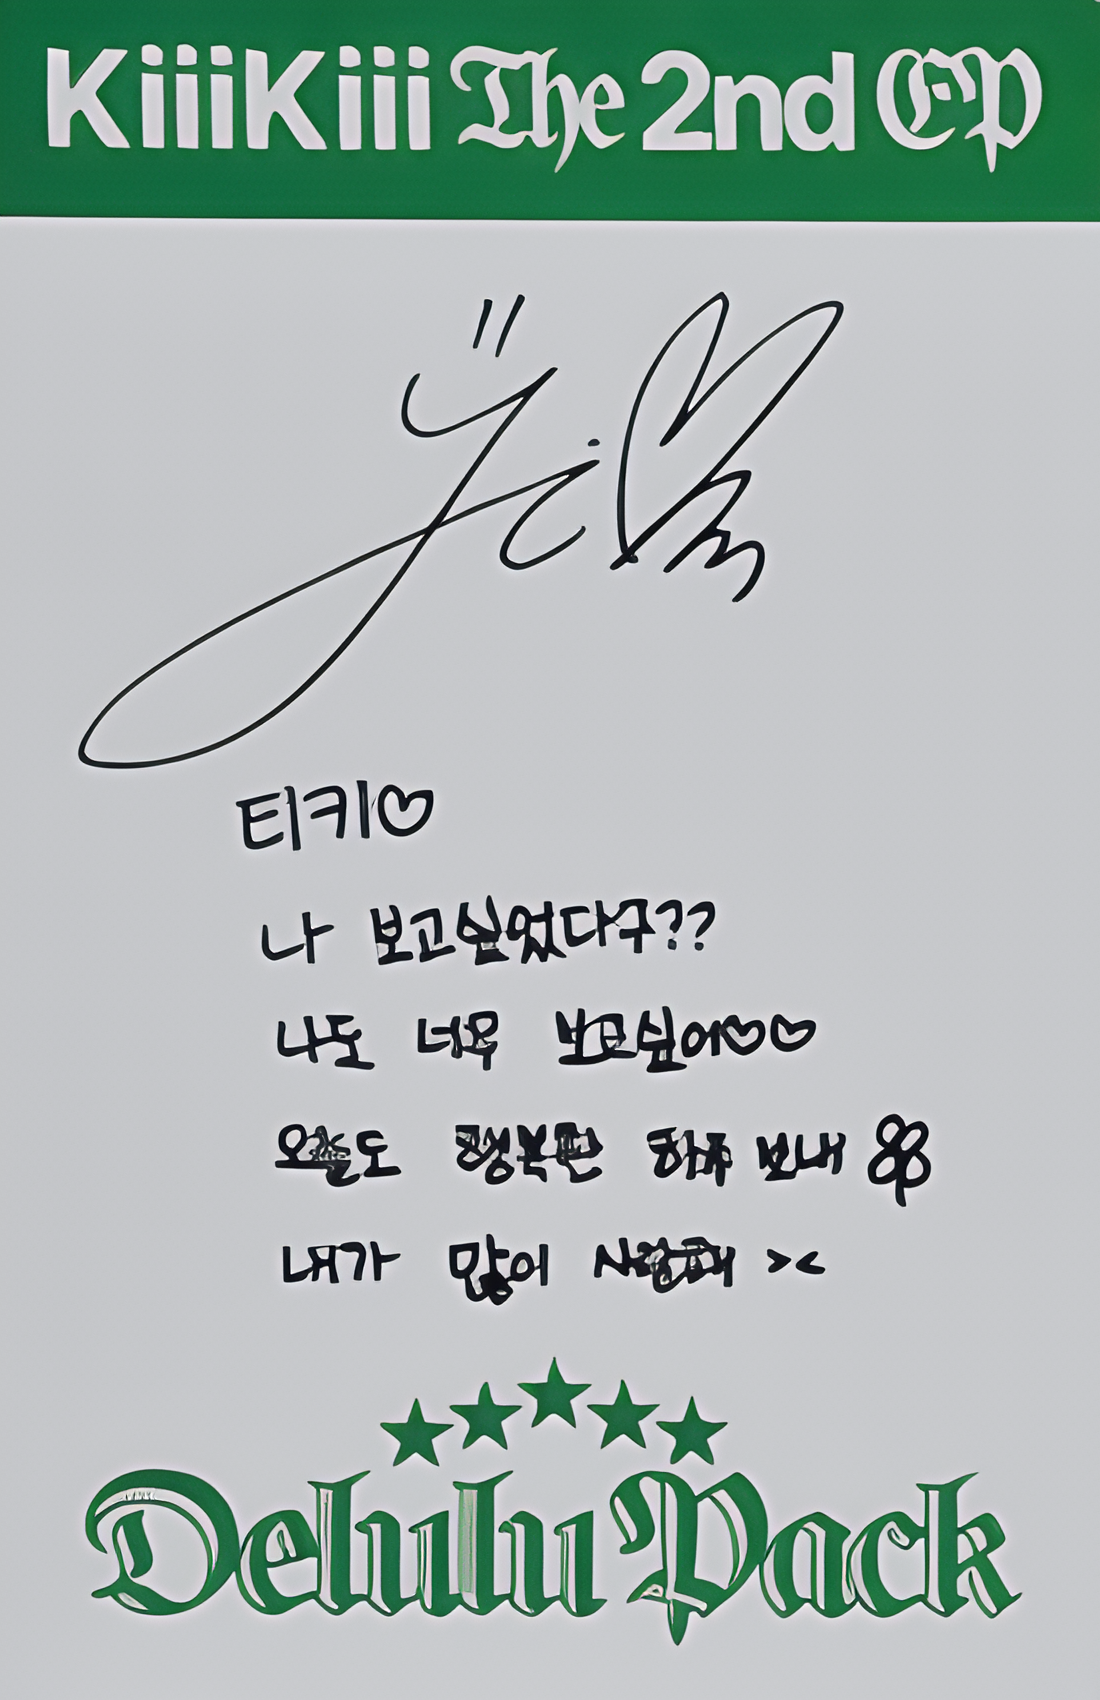 KiiiKiii The 2nd EP
티키♡
나 보고싶었다구??
나도 너무 보고싶어♡♡
오늘도 행복한 하루 보내
내가 많이 사랑해 ><
Delulu Pack